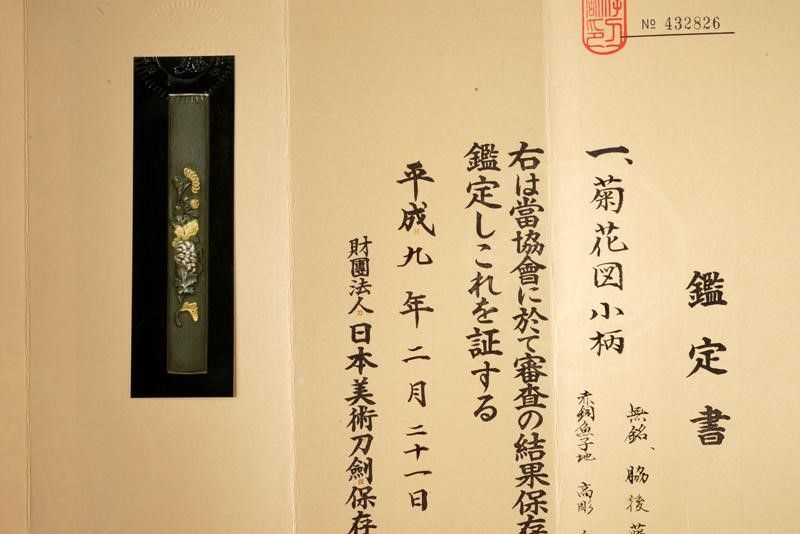 № 432826
鑑定書
一、菊花図小柄
無銘、脇後
赤銅魚子地 高彫
右は當協會に於て審査の結果保存
鑑定しこれを証する
平成九年二月二十一日
財團法人日本美術刀劍保存